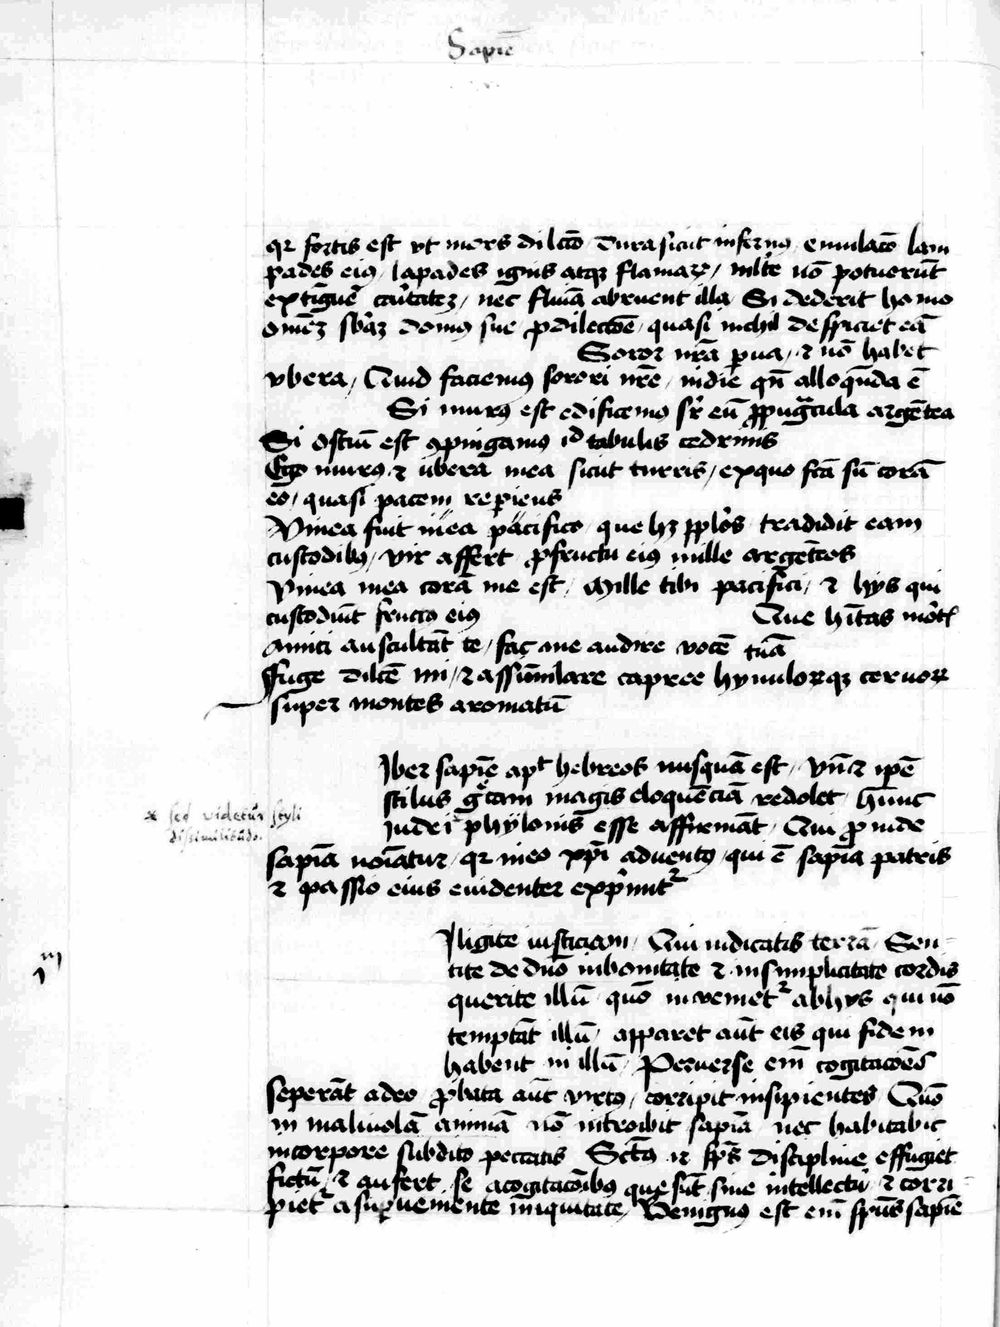 Sapiē
qꝛ fortis est vt mors dilcō dura sicut infernꝰ emulacō lam
pades eiꝰ / lāpades ignis atqꝫ flamaꝝ / mlte nō potuerūt
extīguē caritatēꝫ / nec flumā obruent illā Si dederit homo
omēꝫ sbāꝫ domꝰ sue ꝓ dilectōe quasi nichil despiciet eā
Soror nrā pua / ⁊ nō habet
vbera / Quid faciemꝰ sorori nrē / in diē qn̄ alloqūda ē
Si murꝰ est edificemꝰ sr̄ eū ꝓpugͣcula argētea
Si ostiū est ꝯpingamꝰ id tabulis cedrinis
Ego murꝰ ⁊ ubera mea sicut turris / ex quo fcā sū corā
eo / quasi pacem repiens
Vinea fuit mea pacifico que hꝫ pplos tradidit eam
custodibꝰ / vir affert ꝓ fructu eiꝰ mille argēteos
Vinea mea corā me est / Mille tibi pacifici / ⁊ hijs qui
custodiūt fructꝰ eiꝰ Que hītas in ort
Amici auscultāt te / fac me audire vocē tuā
Ffuge dilcē mi / ⁊ assimilare capree hynuloqꝫ ceruoꝝ
super montes aromatū
Iber sapiē apt hebreos nusquā est / Vn̄ ⁊ ipē
stilus gͣcam magis eloquēciā redolet hūnc
iudei phylonis esse affirmāt / Qui ꝓinde
sed videtur styli
dissimilitudo.
sapīa noiatur / qꝛ in eo xp̄i aduentꝰ / qui ē sapīa patris
⁊ passio eius euidenter exprimit
Iligite iusticiam / Qui iudicatis terrā Sen
tite de dn̄o in bonitate ⁊ in simplicitate cordis
querite illū quō inuenietr ab hijs qui nō
temptāt illū / apparet aūt eis qui fidem
habent in illū / Peruerse em̄ cogitacōes
seperāt a deo ꝓbata aūt virtꝰ / corripit insipientes Quō
in maliuolā animā nō introibit sapīa nec habitabit
in corpore subdito peccatis Sctꝰ n̄ sps discipline effugiet
fictū / ⁊ auferet se a cogitacōibꝰ que sūt sine intellectu ⁊ corri
pietr a supueniente iniquitate / Benignꝰ est em̄ spūs sapiē